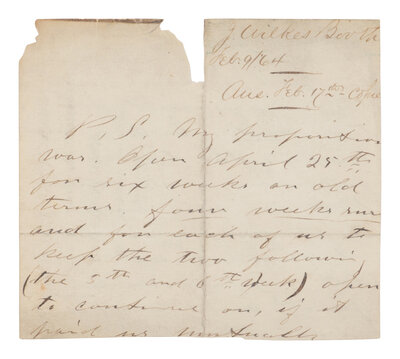 J. Wilkes Booth
Feb. 9/64
Ans. Feb. 17th - Copied
P. S. My proposition
was. Open April 25th
for six weeks on old
terms. four weeks sure
and for each of us to
keep the two following
(the 5th and 6th week) open
to continue on, if it
paid us mutually